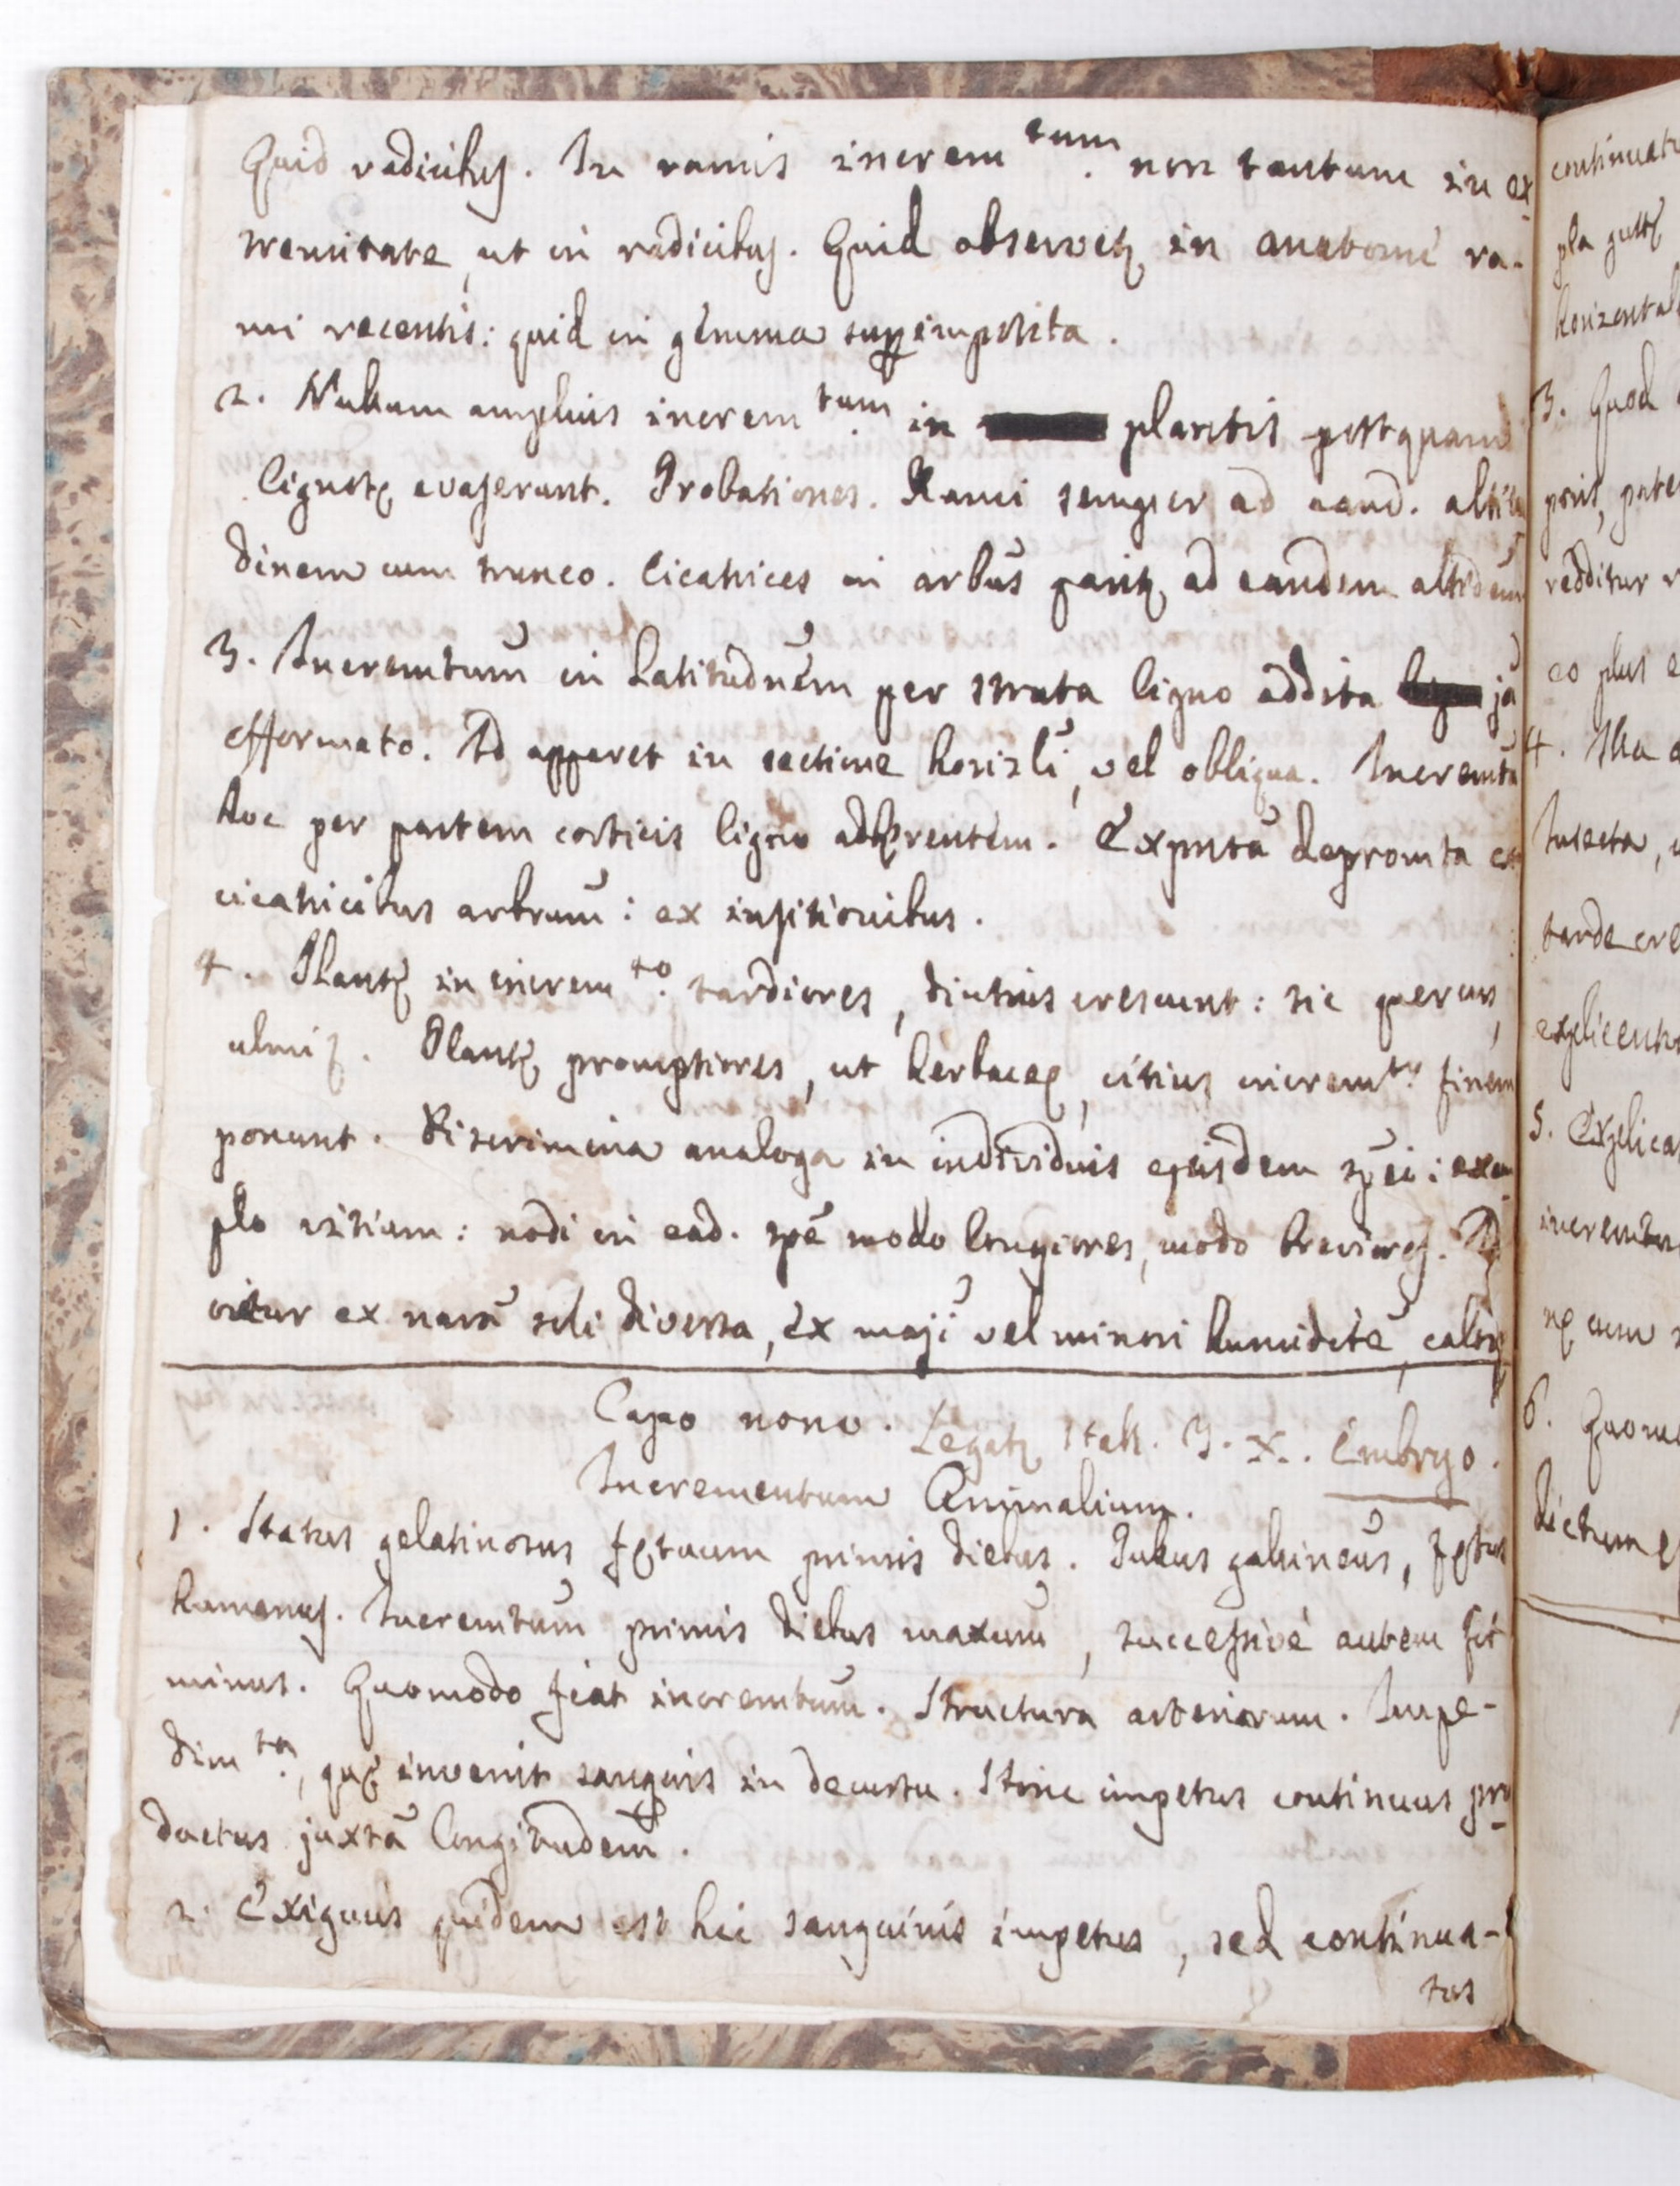 Quid radicibus. In ramis increm^tum. non tantum in ex-
tremitate, ut in radicibus. Quid observetq in anatome ra-
mi recentis: quid in gemma superimposita.
2. Nullum amplius increm^tum. in plantis postquam
lignose evaserunt. Probationes. Rami semper ad eand. altitu
dinem cum trunco. Cicatrices in arbūs pariter ad eandem
3. Incremtum in Latitudnem per strata ligno addita jā
efformato. Id apparet in sectione horizli, vel obliqua. Incremtū
hoc per partem corticis ligno adhęrentem. Expmtā depromta ex
cicatricibus arbrum: ex insitionibus.
4. Plantę in increm^to. tardiores, diutius crescunt: sic quercus,
ulmi. Plantę promptiores, ut herbaceę, citius increm^to. finem
ponunt. Discrimina analoga in individuis ejusdem spēi: exem
plo vitium: nodi in ead. spē modo longiores, modo breviores. Id
oritur ex narā soli diversa, ex majī vel minori humidtē, calore
Capo nono. Legatq Hall. Embryo.
Incrementum Animalium.
1. Status gelatinosus fętuum primis diebus. Pullus gallinēus, fętus
humanus. Incremtum primis diebus maxum, successivè autem fit
minus. Quomodo fiat incremtum. Structura arteriarum. Impe-
dim^ta., quę invenit sanguis in decursu. Hinc impetus continuus pro-
ductus juxtā Longitudem.
2. Exiguus quidem est hic sanguinis impetus, sed continua-
tus
continuatu
pla guttę
horizontal
3. Quod
redditur
eo plus
4. Illa
Insecta,
tarde cre
explicentur
5. Explica
incremtum
nę cum
6. Quomo
dictum